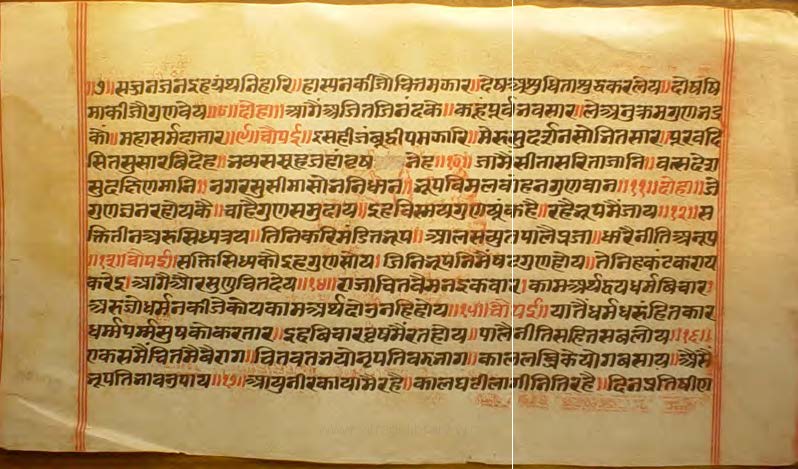 ॥७॥ सज्जनजनइहग्रंथनिहारि॥ हास्यनकीजौचित्तमझार॥ देषअशुधिताशुधकरलेय॥ दोषषि
माकीजौगुणवेय॥८॥ दोहा॥ आगैंअजितजिनंदके॥ कहूंपूर्वभवसार॥ लेअनुक्रमगुणभद्र
कौ॥ महासर्मदातार॥९॥ चौपई॥ इसहीजंबूद्वीपमझारि॥ मेरुसुदर्शनसोभितसार॥ पूरवदि
सितसुसारविदेह॥ जेह॥१०॥ जामैंसीतासरिताजानि॥ वत्सदेश
सुदक्षिणमानि॥ नगरसुसीमासोभनिधान॥ नृपविमलवाहनगुणवान॥११॥ दोहा॥ जे
गुणजनरहोयकै॥ चाहैगुणसमुदाय॥ इहविस्मयगुणयुंकहै॥ रहैनृपमैंजाय॥१२॥ स
क्तितीनअरुसिध्यत्रय॥ तिनिकरिमंडितनृप॥ आलसच्युतपालैप्रजा॥ धारैनीतिअनूप
॥१३॥ चौपई॥ सक्तिसिध्यकोइहगुणसोय॥ जितिनृपतिमैंषटगुणहोय॥
करेइ॥ आगैंऔरसुणुचितदेय॥१४॥ राजाचितवैमनइकवार॥ कामअर्थद्वयधर्मविचार॥
अरुजोधर्मनकीजैकोय॥ कामअर्थदोउनहिहोय॥१५॥ चौपई॥ यातैंधर्मधसंहितकार
धर्म्मपर्म्मसुषकोकरतार॥ इहविचारवृषमैंरतहोय॥ पालैनीतिसहितसबलोय॥१६॥
एकसमैंचितमैंवैराग॥ चितवतभयोनृपतिवडभाग॥ काललब्धिकेयोगबसाय॥ औसैं
नृपतिभावनभाय॥१७॥ आयुनीरकायामैंरहै॥ कालघटीलागीनितिरहै॥ दिनप्रतिषीण